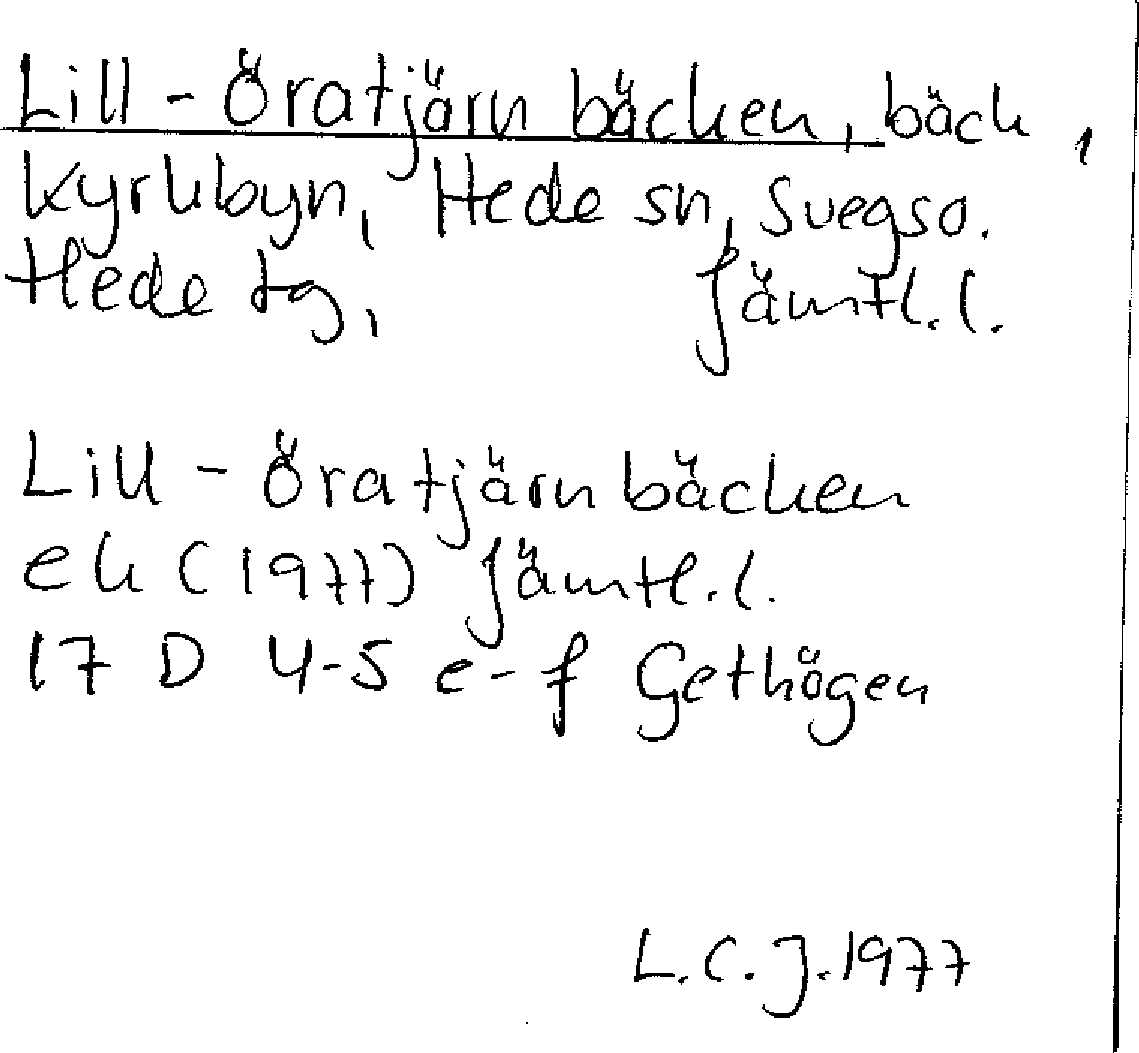 Lill-Öratjärnbäcken, bäck,
Kyrkbyn, Hede sn, Svegs o.
Hede tg, Jämtl.l.
Lill-Öratjärnbäcken
ek (1977) Jämtl.l.
17 D 4-5 e-f Gethögen
L.C.J. 1977